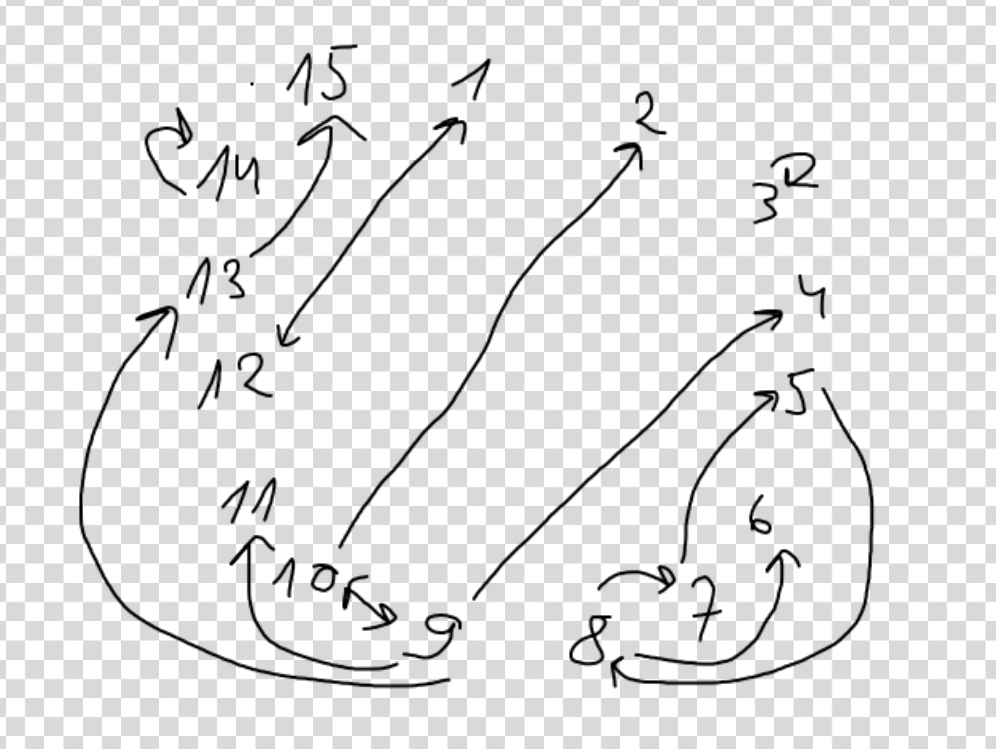 15
1
2
14
3
13
4
12
5
11
6
10
9
7
8